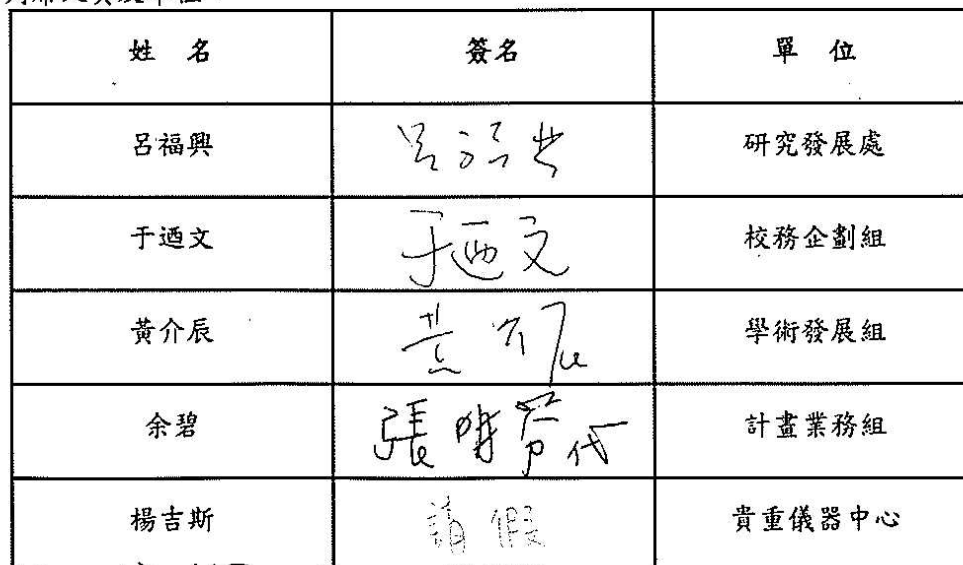 姓 名 簽名 單 位
呂福興 呂福興 研究發展處
于逎文 于逎文 校務企劃組
黃介辰 黃介辰 學術發展組
余碧 張 代 計畫業務組
楊吉斯 請假 貴重儀器中心